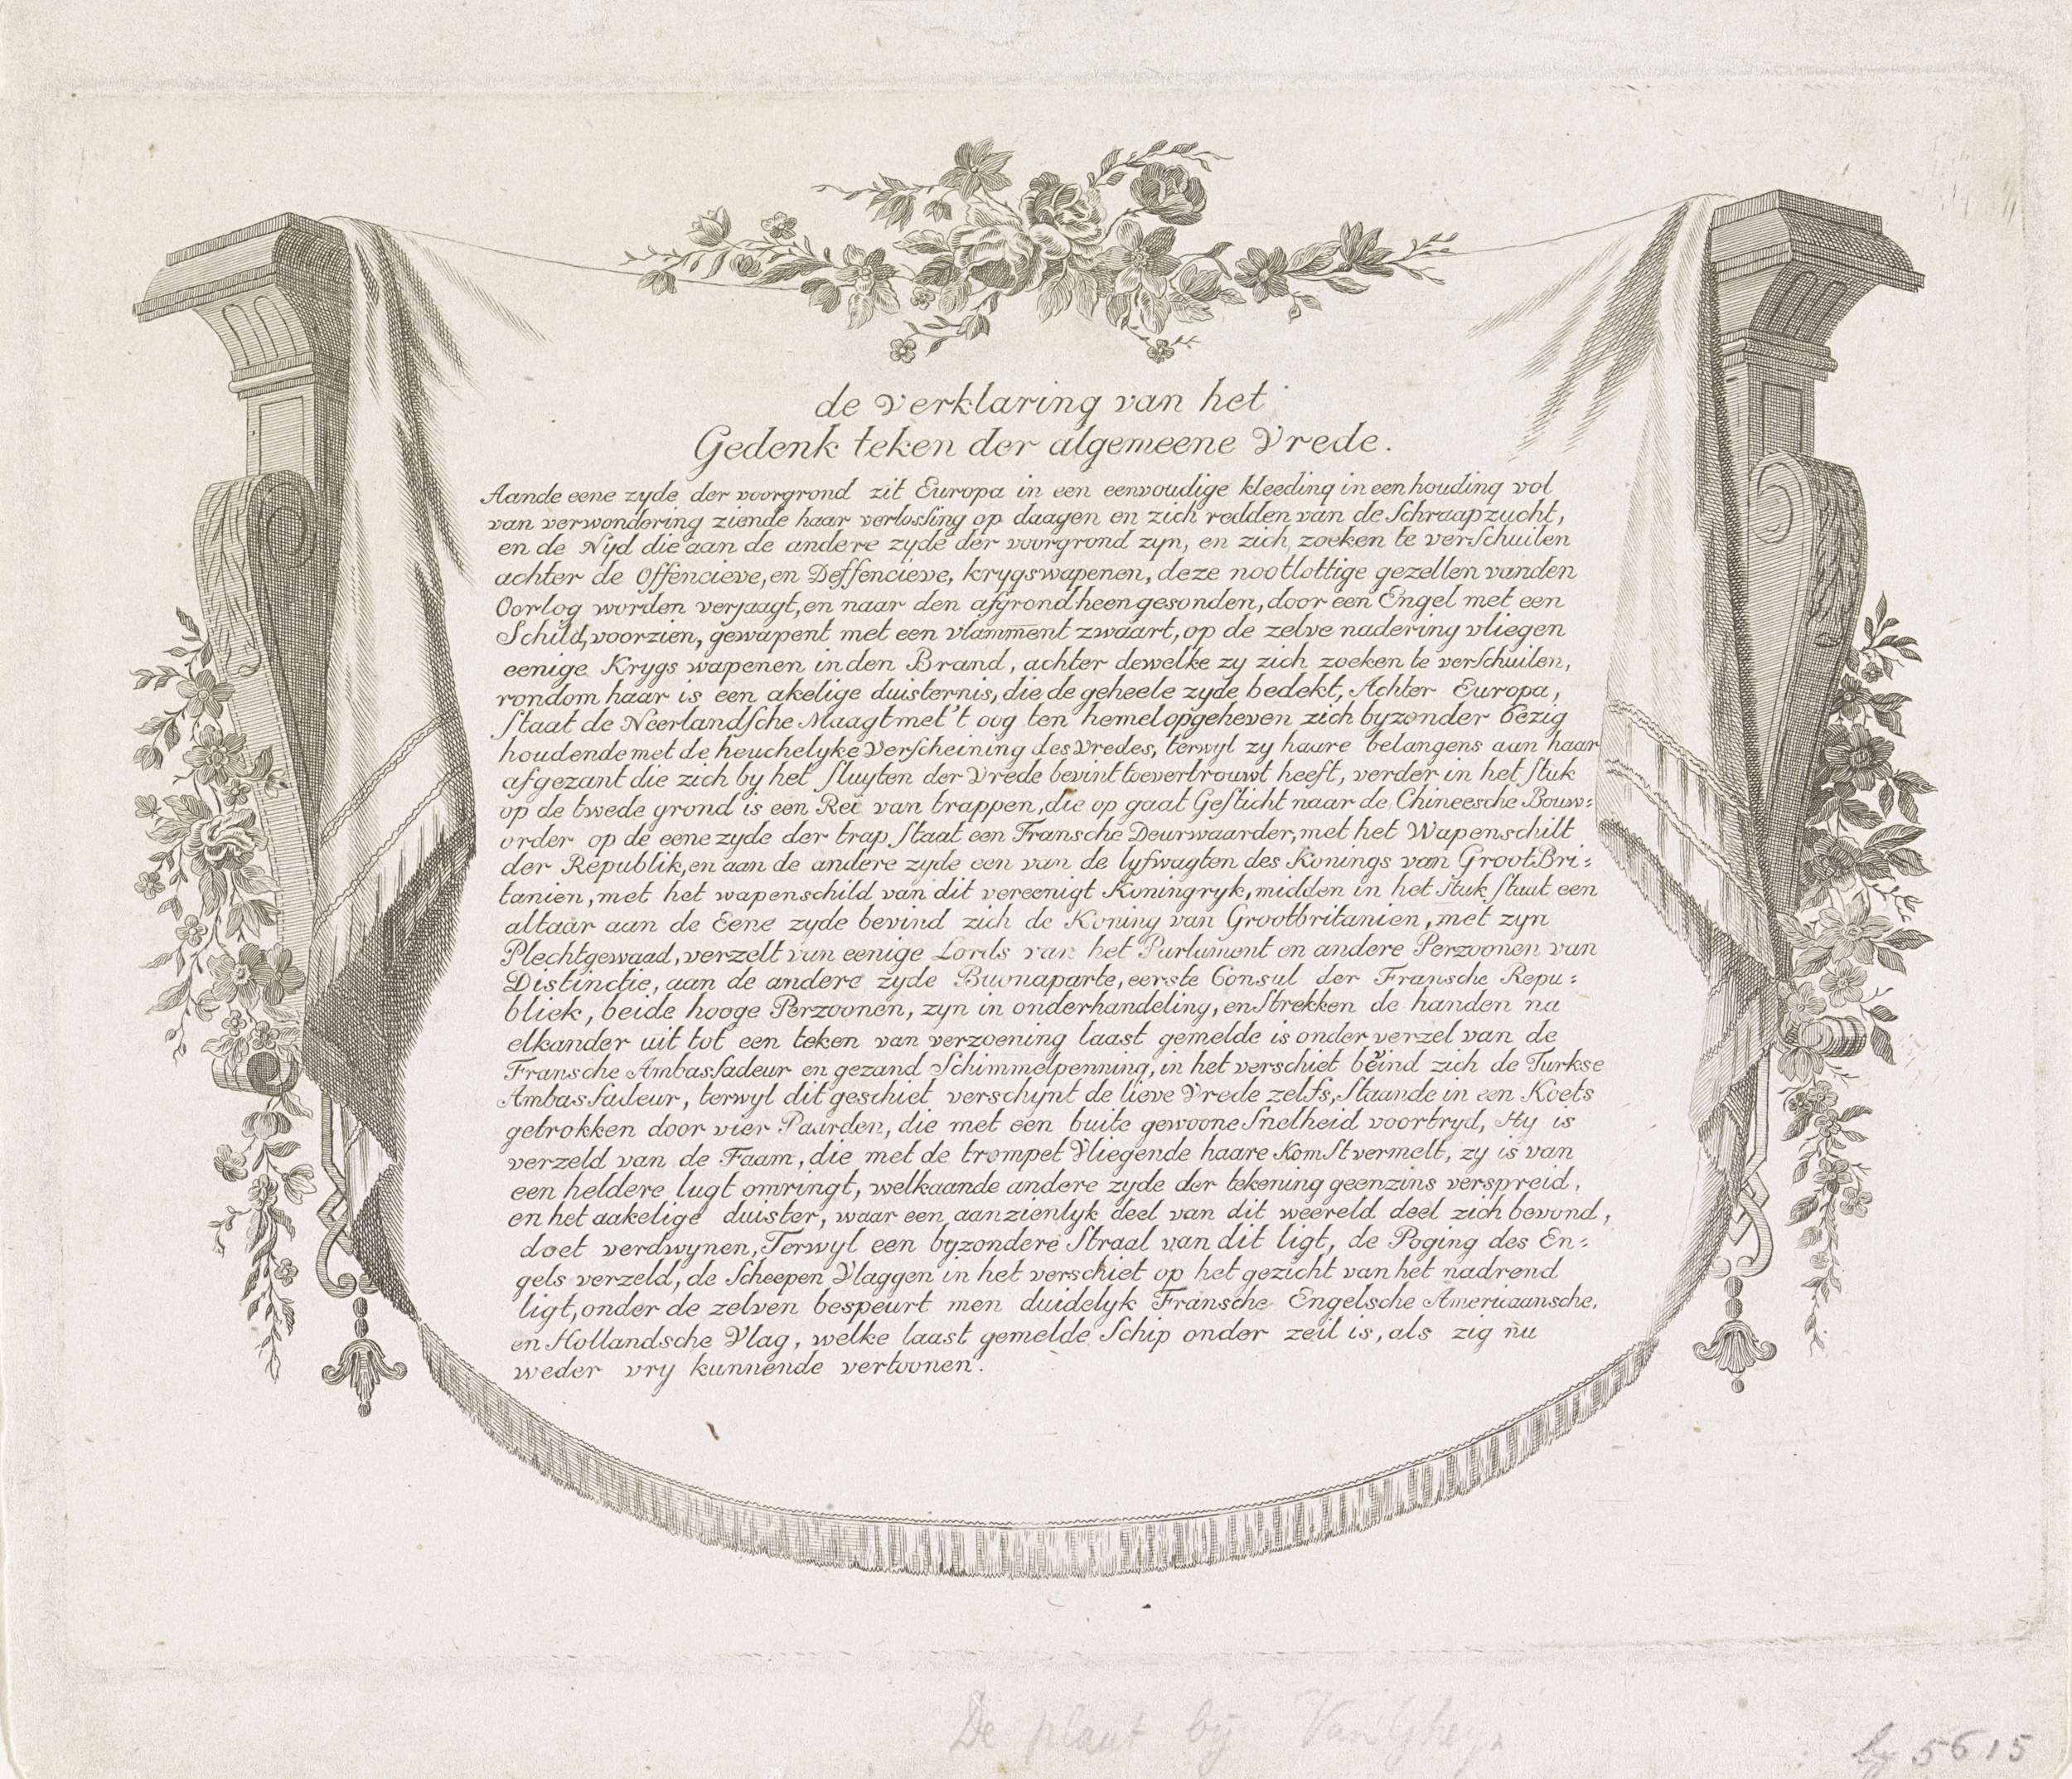 de Verklaring van het
Gedenk teken der algemeene Vrede.
Aande eene zyde der voorgrond zit Europa in een eenvoudige kleeding in een houding vol
van verwondering ziende haar verlossing op daagen en zich redden van de Schraapzucht,
en de Nijd die aan de andere zyde der voorgrond zyn, en zich zoeken te verschuilen
achter de Offencieve, en Deffencieve, krygswapenen, deze nootlottige gezellen vanden
Oorlog worden verjaagt, en naar den afgrond heen gesonden, door een Engel met een
Schild, voorzien, gewapent met een vlamment zwaart, op de zelve nadering vliegen
eenige Krygs wapenen in den Brand, achter dewelke zy zich zoeken te verschuilen,
rondom haar is een akelige duisternis, die de geheele zyde bedekt, Achter Europa,
staat de Neerlandsche Maagt met 't oog ten hemel opgeheven zich byzonder bezig
houdende met de heuchelyke Verscheining des Vredes, terwyl zy haare belangens aan haar
afgezant die zich by het sluyten der Vrede bevint toevertrouwt heeft, verder in het stuk
op de twede grond is een Rei van trappen, die op gaat Gesticht naar de Chineesche Bouw:
order op de eene zyde der trap staat een Fransche Deurwaarder, met het Wapenschilt
der Republik, en aan de andere zyde een van de lyfwagten des Konings van Groot Bri:
tanien, met het wapenschild van dit vereenigt Koningryk, midden in het stuk staat een
altaar aan de Eene zyde bevind zich de Koning van Grootbritanien, met zyn
Plechtgewaad, verzelt van eenige Lords van het Parlament en andere Perzoonen van
Distinctie, aan de andere zyde Buonaparte, eerste Consul der Fransche Repu:
bliek, beide hooge Perzoonen, zyn in onderhandeling, en strekken de handen na
elkander uit tot een teken van verzoening laast gemelde is onder verzel van de
Fransche Ambassadeur en gezand Schimmelpenning, in het verschiet bevind zich de Turkse
Ambassadeur, terwyl dit geschiet verschynt de lieve Vrede zelfs, staande in een Koets
getrokken door vier Paarden, die met een buite gewoone snelheid voortryd, Hy is
verzeld van de Faam, die met de trompet Vliegende haare Komst vermelt, zy is van
een heldere lugt omringt, welk aande andere zyde der tekening geenzins verspreid,
en het aakelige duister, waar een aanzienlyk deel van dit weereld deel zich bevond,
doet verdwynen, Terwyl een byzondere straal van dit ligt, de Poging des En:
gels verzeld, de Scheepen Vlaggen in het verschiet op het gezicht van het nadrend
ligt, onder de zelven bespeurt men duidelyk Fransche Engelsche Americaansche,
en Hollandsche Vlag, welke laast gemelde Schip onder zeil is, als zig nu
weder vry kunnende vertoonen.
De plaat bij
by 5615